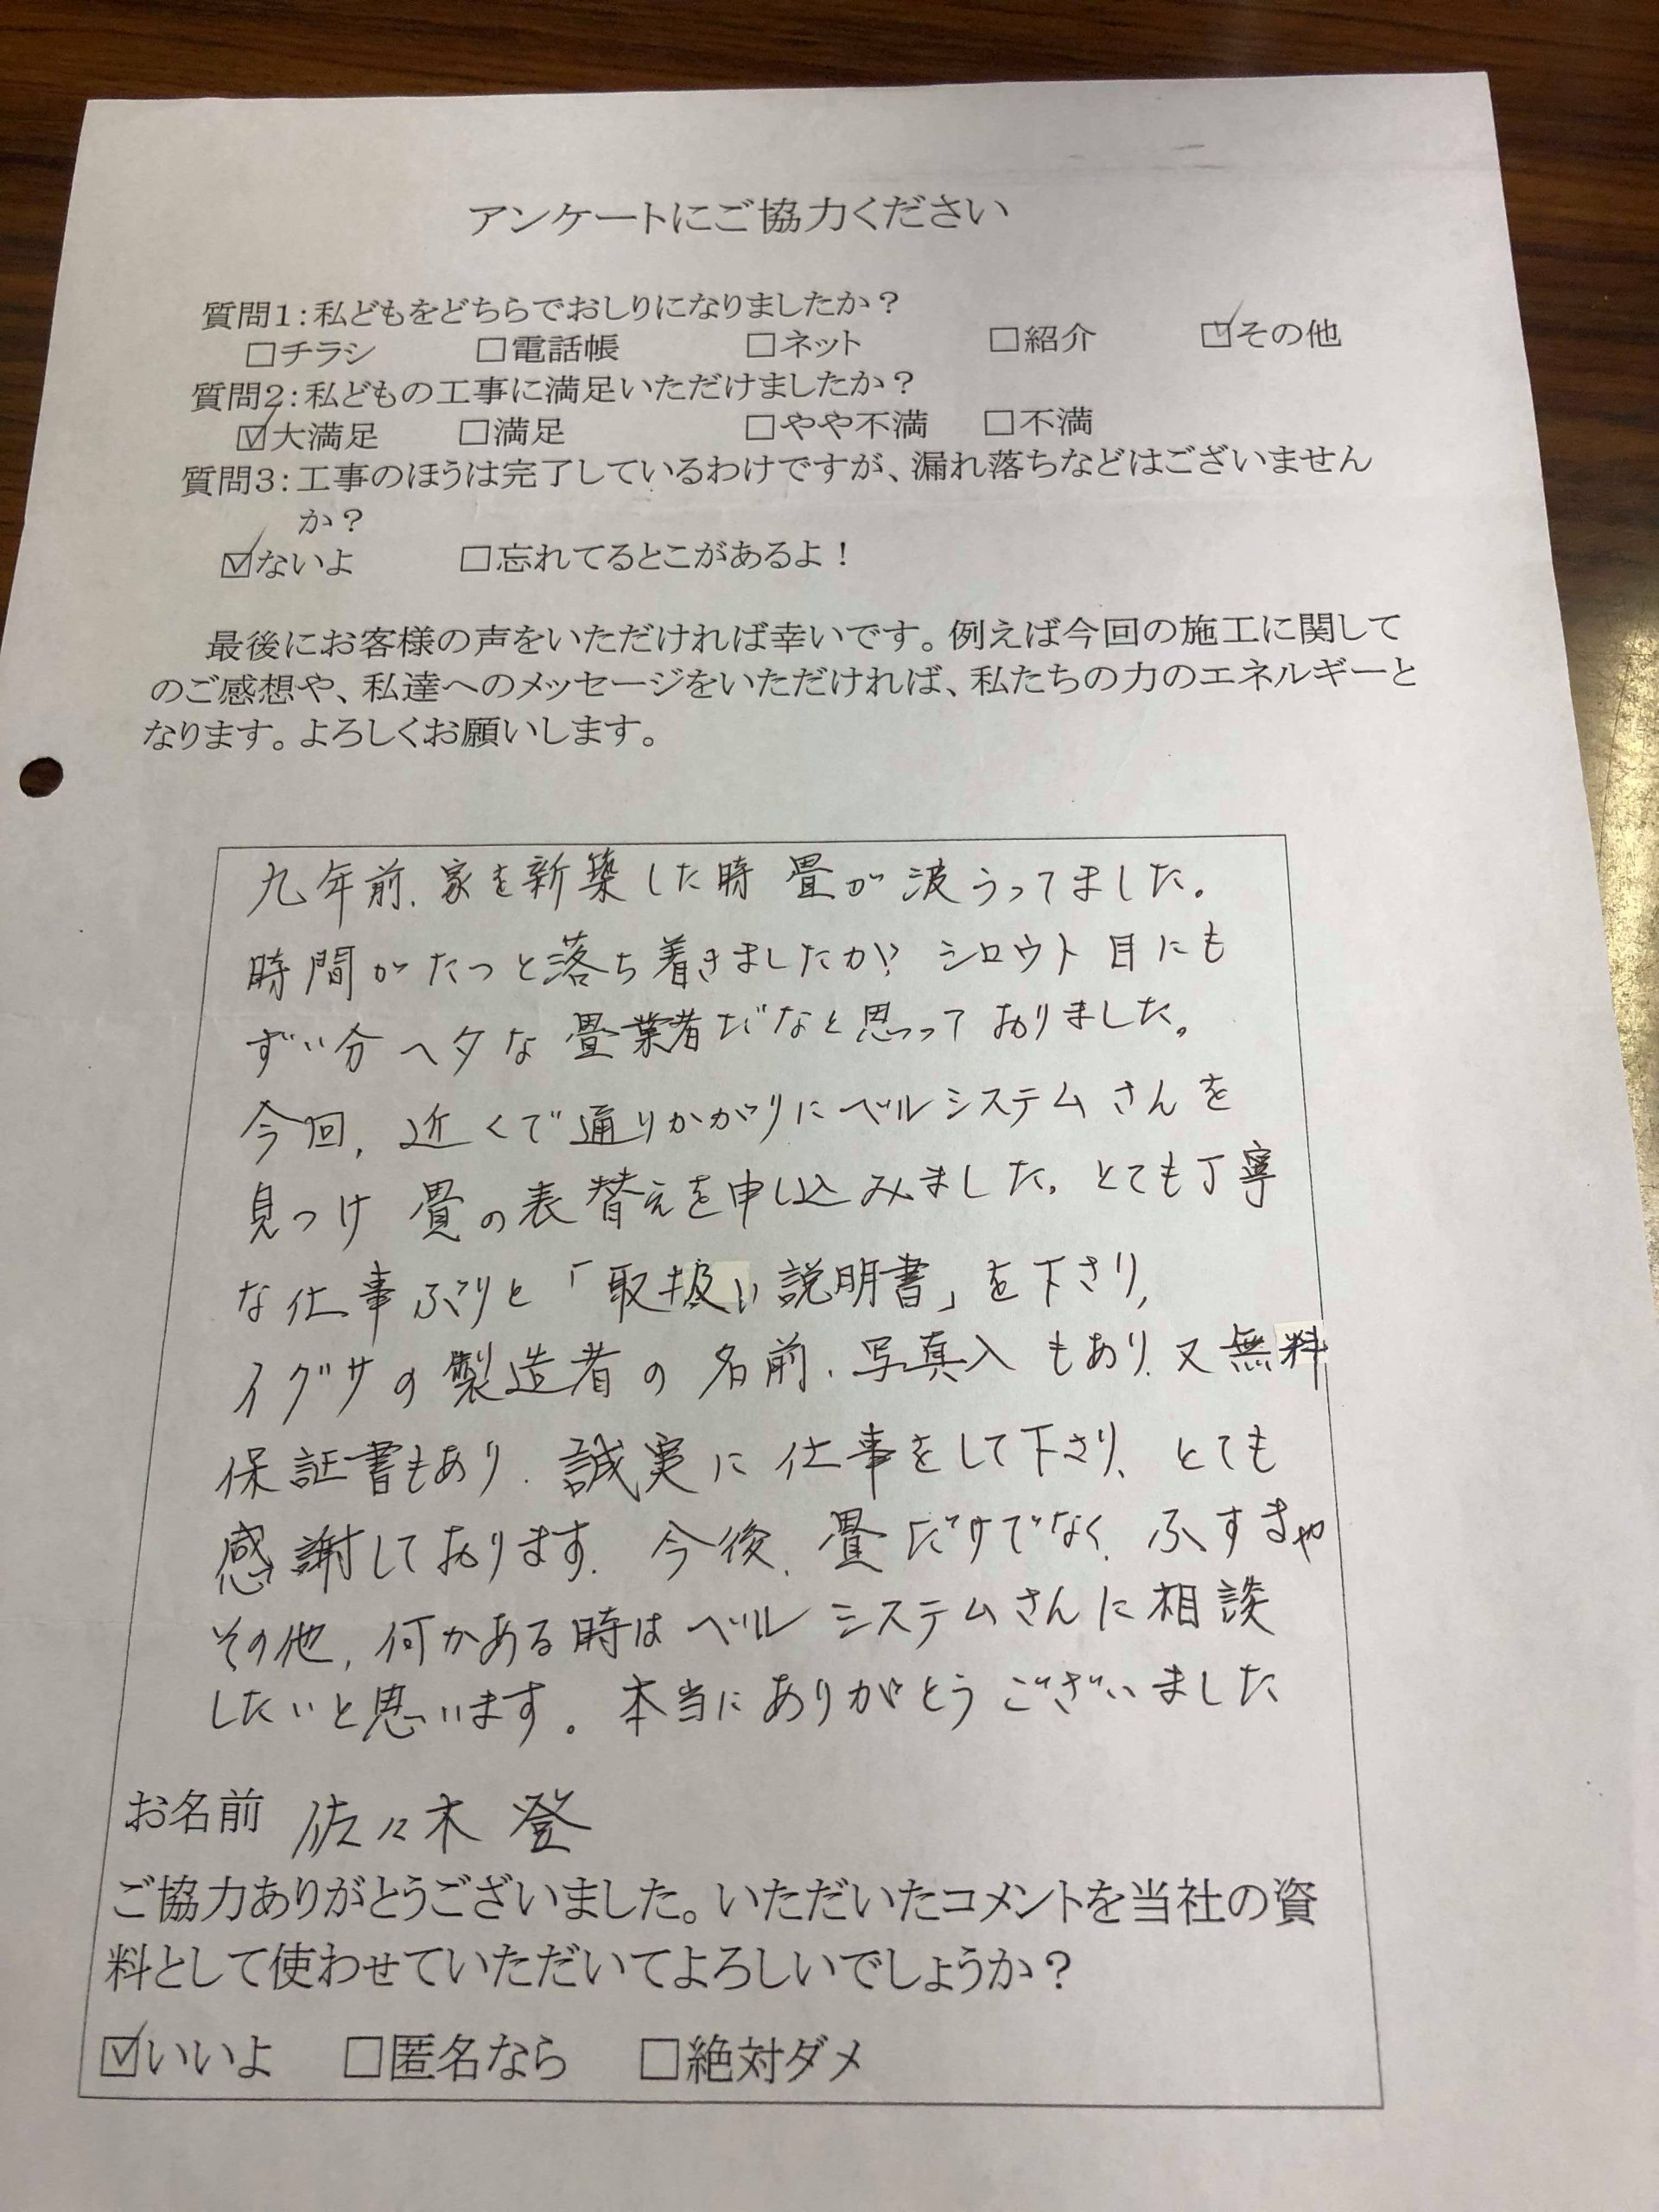 アンケートにご協力ください
質問1:私どもをどちらでおしりになりましたか?
□チラシ □電話帳 □ネット □紹介 ☑その他
質問2:私どもの工事に満足いただけましたか?
☑大満足 □満足 □やや不満 □不満
質問3:工事のほうは完了しているわけですが、漏れ落ちなどはございません
か?
☑ないよ □忘れてるとこがあるよ!
最後にお客様の声をいただければ幸いです。例えば今回の施工に関して
のご感想や、私達へのメッセージをいただければ、私たちの力のエネルギーと
なります。よろしくお願いします。
九年前、家を新築した時 畳が波うってました。
時間がたつと落ち着きましたが? シロウト目にも
ずい分ヘタな畳業者だなと思っておりました。
今回、近くで通りがかりにベルシステムさんを
見つけ 畳の表替えを申し込みました。とても丁寧
な仕事ぶりと「取扱い説明書」を下さり、
イグサの製造者の名前、写真入もあり、又無料
保証書もあり、誠実に仕事をして下さり、とても
感謝しております。今後、畳だけでなく、ふすまや
その他、何かある時はベルシステムさんに相談
したいと思います。本当にありがとうございました
お名前 佐々木 登
ご協力ありがとうございました。いただいたコメントを当社の資
料として使わせていただいてよろしいでしょうか?
☑いいよ □匿名なら □絶対ダメ